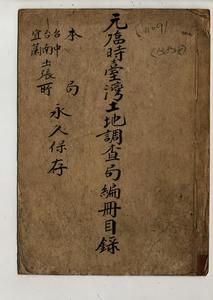 元臨時臺灣土地調查局編冊目錄
本局
台中
台南
宜蘭
出張所
永久保存